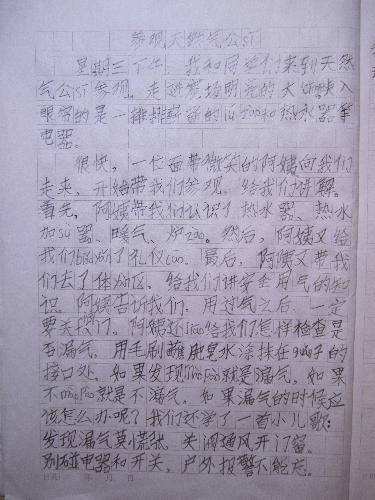 参观天然气公sī
星期三下午，我和同学们来到天然
气公sī参观。走进宽场明亮的大厅，映入
眼帘的是一排排整齐的lú zào和热水器等
电器。
很快，一位面带微笑的阿姨向我们
走来，开始带我们参观，给我们讲解。
首先，阿姨带我们认识了热水器、热水
加sū器、暖气、炉zào。然后，阿姨又给
我们biǎo yǎn了礼仪cāo。最后，阿姨又带我
们去了体yàn区，给我们讲安全用气的知
识。阿姨告诉我们，用过气之后，一定
要关fá门。阿姨还jiāo给我们怎样检查是
否漏气，用毛刷蘸肥皂水涂抹在guǎn子的
接口处，如果发现mào pào就是漏气，如果
不mào pào就是不漏气。如果漏气的时候应
该怎么办呢？我们还学了一首小儿歌：
发现漏气莫慌张，关阀通风开门窗。
别碰电器和开关，户外报警不能忘。
年 月 日